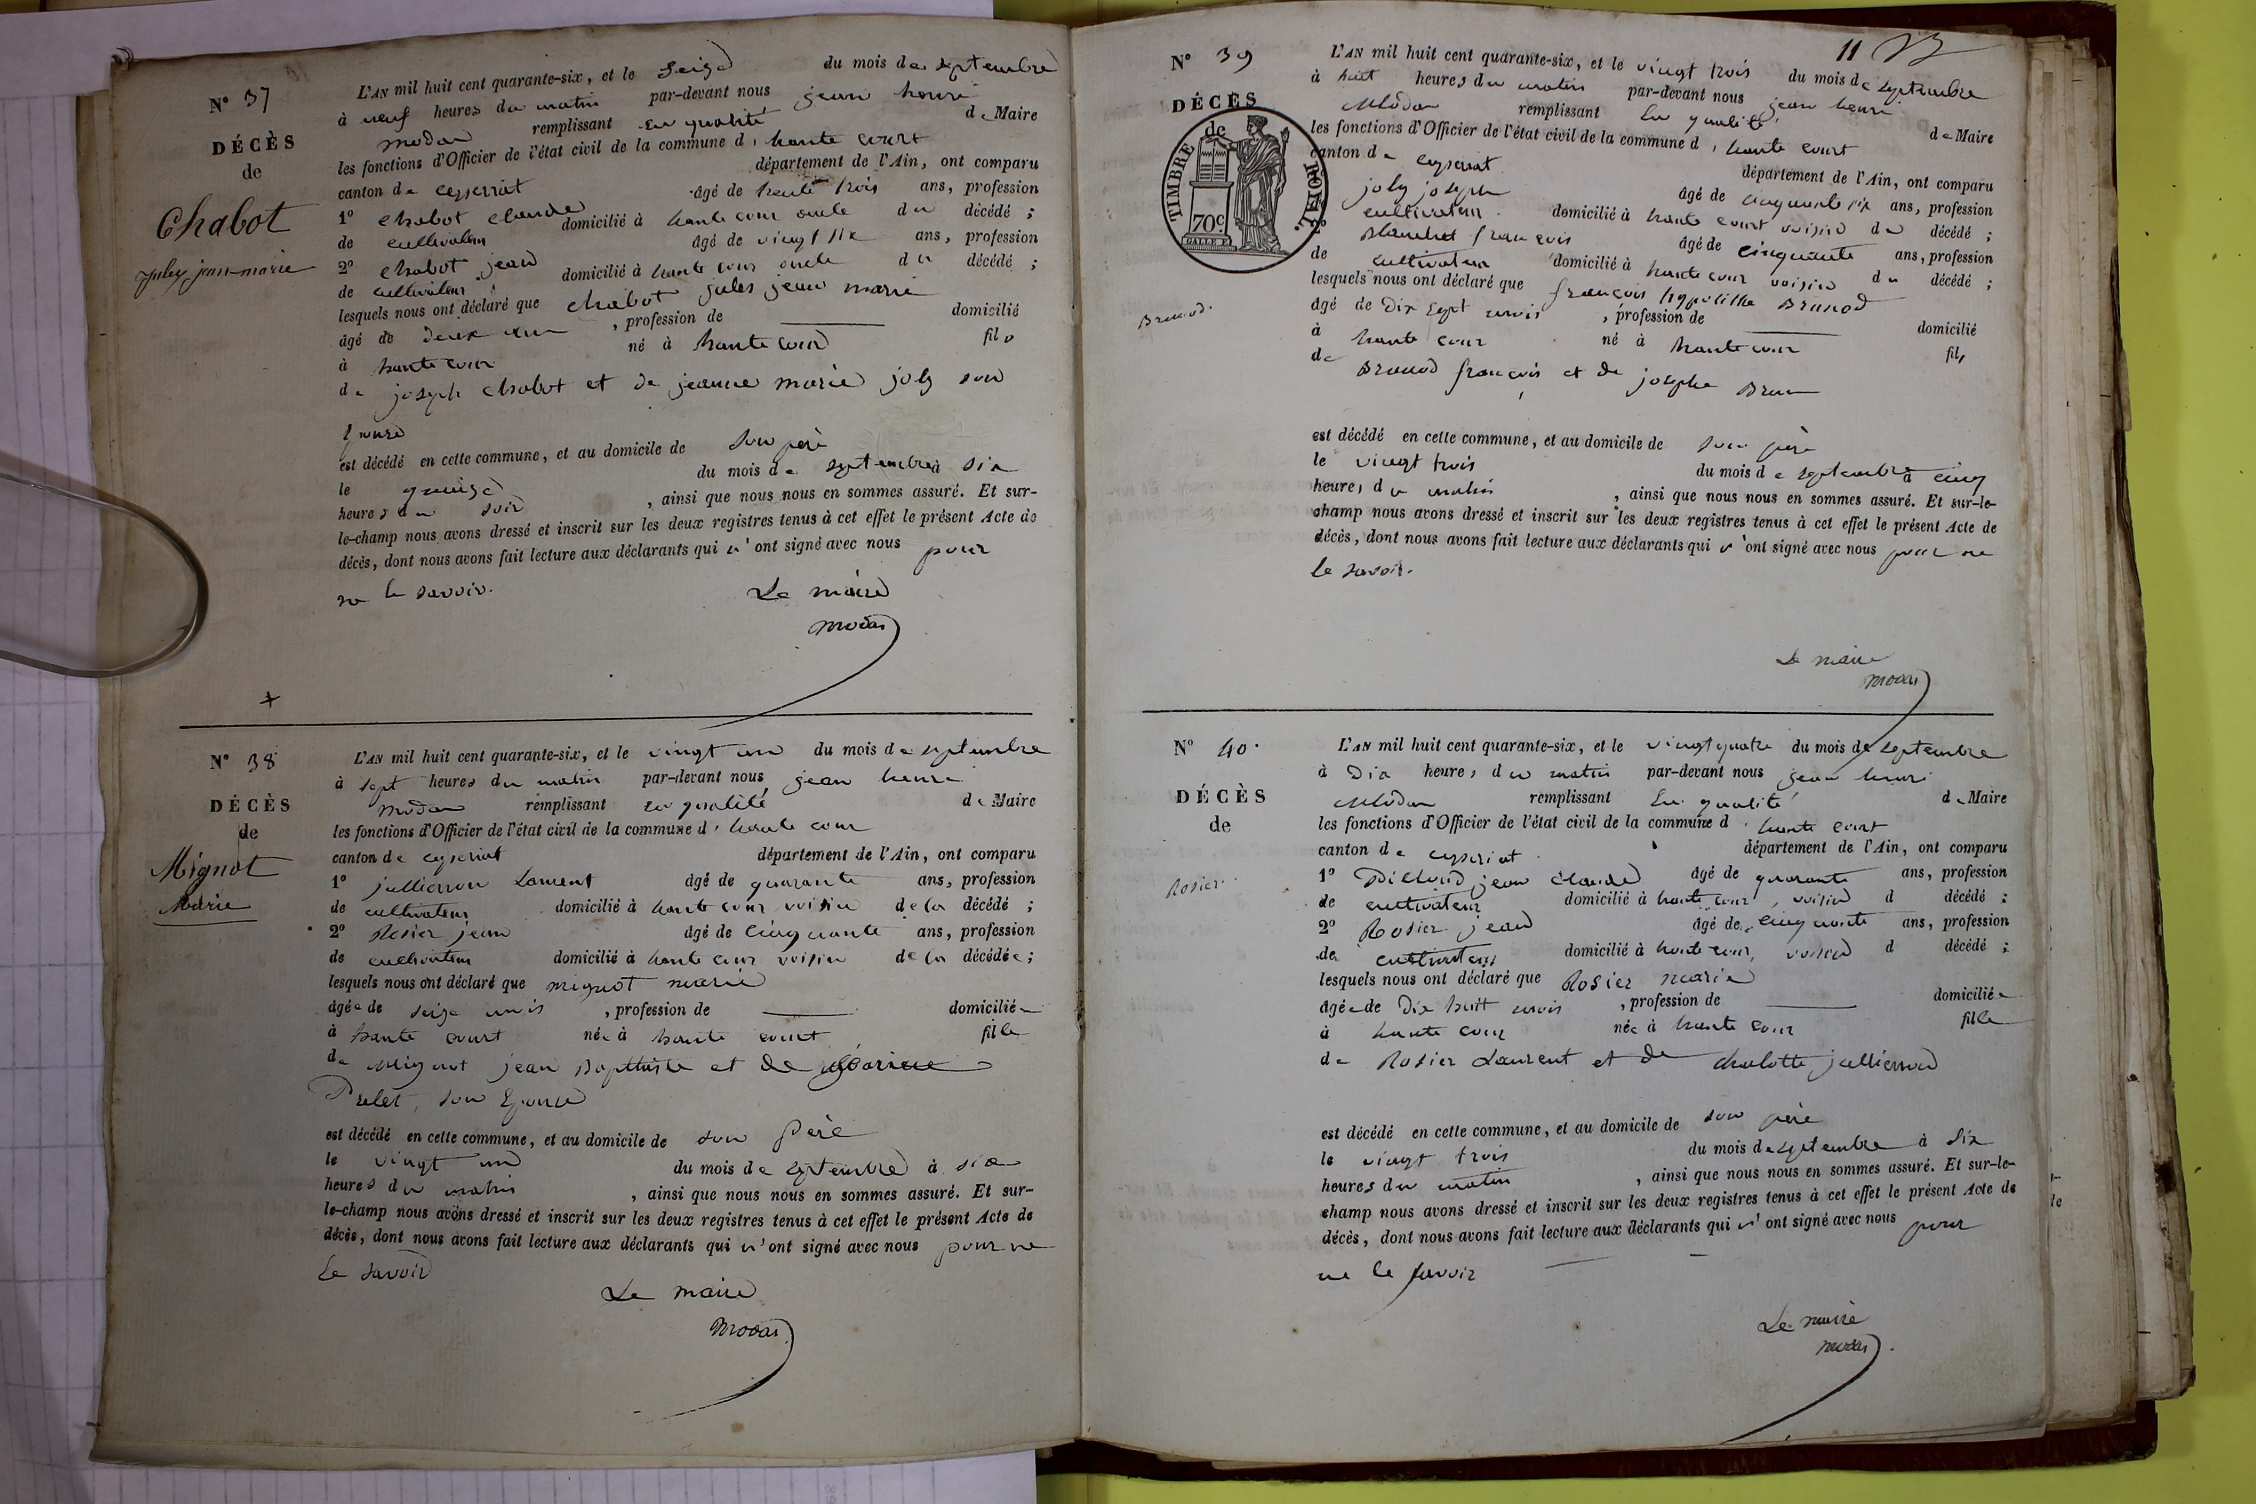 N° 37
DÉCÈS
de
Chabot
jules jean-marie
L'AN mil huit cent quarante-six, et le Seize du mois de septembre
à neuf heures du matin par-devant nous jean henri
modas remplissant en qualité de Maire
les fonctions d'Officier de l'état civil de la commune d' haute court
canton de ceyzeriat département de l'Ain, ont comparu
1° chabot claude âgé de trente trois ans, profession
de cultivateur domicilié à haute cour oncle du décédé ;
2° chabot jean âgé de vingt six ans, profession
de cultivateur domicilié à haute cour oncle du décédé ;
lesquels nous ont déclaré que chabot jules jean marie
âgé de deux ans , profession de domicilié
à haute cour né à haute cour fils
de joseph chabot et de jeanne marie joly son
épouse
est décédé en cette commune, et au domicile de son père
le quinze du mois de septembre à six
heures du soir , ainsi que nous nous en sommes assuré. Et sur-
le-champ nous avons dressé et inscrit sur les deux registres tenus à cet effet le présent Acte de
décès, dont nous avons fait lecture aux déclarants qui n'ont signé avec nous pour
ne le savoir.
Le maire
modas
N° 38
DÉCÈS
de
Mignot
Marie
L'AN mil huit cent quarante-six, et le vingt un du mois de septembre
à sept heures du matin par-devant nous jean henri
modas remplissant en qualité de Maire
les fonctions d'Officier de l'état civil de la commune d' haute cour
canton de ceyseriat département de l'Ain, ont comparu
1° jullieron Laurent âgé de quarante ans, profession
de cultivateur domicilié à haute cour voisin de la décédé ;
2° Rosier jean âgé de cinquante ans, profession
de cultivateur domicilié à haute cour voisin de la décédée ;
lesquels nous ont déclaré que mignot marie
âgée de seize mois , profession de domiciliée
à haute court née à haute court fille
de Mignot jean Baptiste et de
Prelet, son Epouse
est décédé en cette commune, et au domicile de son père
le vingt un du mois de septembre à six
heures du matin , ainsi que nous nous en sommes assuré. Et sur-
le-champ nous avons dressé et inscrit sur les deux registres tenus à cet effet le présent Acte de
décès, dont nous avons fait lecture aux déclarants qui n'ont signé avec nous pour ne
le savoir
Le maire
modas
11
N° 39
DÉCÈS
de
TIMBRE ROYAL.
70c.
Brunod.
L'AN mil huit cent quarante-six, et le vingt trois du mois de septembre
à huit heures du matin par-devant nous jean henri
Modas remplissant En qualité de Maire
les fonctions d'Officier de l'état civil de la commune d' haute court
canton de ceyseriat département de l'Ain, ont comparu
joly joseph âgé de cinquante six ans, profession
cultivateur domicilié à haute court voisin du décédé ;
2° Blanchet francois âgé de cinquante ans, profession
de cultivateur domicilié à haute cour voisin du décédé ;
lesquels nous ont déclaré que françois hypolithe Brunod
âgé de Dix sept mois , profession de domicilié
à haute cour né à haute cour fils
de Brunod françois et de josephe Brun
est décédé en cette commune, et au domicile de son père
le vingt trois du mois de septembre à cinq
heures du matin , ainsi que nous nous en sommes assuré. Et sur-le-
champ nous avons dressé et inscrit sur les deux registres tenus à cet effet le présent Acte de
décès, dont nous avons fait lecture aux déclarants qui n'ont signé avec nous pour ne
le savoir.
Le maire
modas
N° 40.
DÉCÈS
de
Rosier.
L'AN mil huit cent quarante-six, et le vingt quatre du mois de septembre
à Dix heures du matin par-devant nous jean henri
Modas remplissant En qualité de Maire
les fonctions d'Officier de l'état civil de la commune d' haute court
canton de ceyseriat département de l'Ain, ont comparu
1° jean claude âgé de quarante ans, profession
de cultivateur domicilié à haute cour, voisin d décédé ;
2° Rosier jean âgé de cinquante ans, profession
de cultivateur domicilié à haute cour, voisin d décédé ;
lesquels nous ont déclaré que Rosier marie
âgée de Dix huit mois , profession de domiciliée
à haute cour née à haute cour fille
de Rosier Laurent et de charlotte jullieron
est décédé en cette commune, et au domicile de son père
le vingt trois du mois de septembre à Dix
heures du matin , ainsi que nous nous en sommes assuré. Et sur-le-
champ nous avons dressé et inscrit sur les deux registres tenus à cet effet le présent Acte de
décès, dont nous avons fait lecture aux déclarants qui n'ont signé avec nous pour
ne le savoir
Le maire
modas